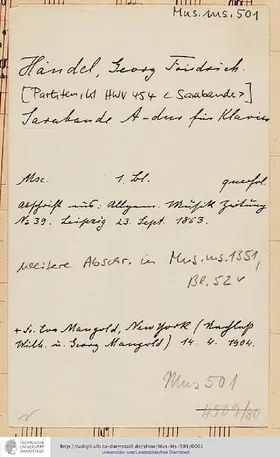 Mus.ms.501
Händel, Georg Friedrich.
[Partiten, Kl HWV 454 <Sarabande>]
Sarabande A-dur für Klavier
Msc. 1 Bl. querfol.
Abschrift aus: Allgem. Musik Zeitung
No 39. Leipzig 23. Sept. 1863.
weitere Abschr. in Mus.ms.1351,
Bl. 52v
Eva Mangold, New York (Nachlaß
Wilh. u. Georg Mangold) 14. 4. 1904.
Mus 501
TECHNISCHE
UNIVERSITÄT
DARMSTADT
http://tudigit.ulb.tu-darmstadt.de/show/Mus-Ms-501/0001
Universitäts- und Landesbibliothek Darmstadt